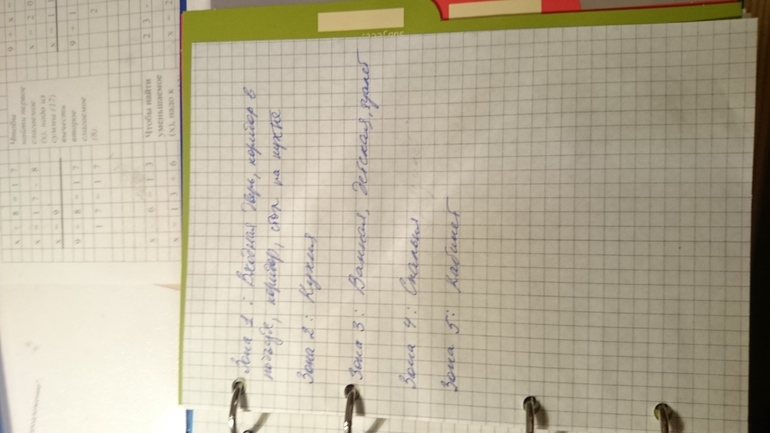 Зона 1: Входная дверь, коридор в
подъезде, коридор, стол на кухне
Зона 2: Кухня
Зона 3: Ванная, Детская, туалет
Зона 4: Спальня
Зона 5: Кабинет
Чтобы
найти первое
слагаемое
(x), надо из
суммы (17)
вычесть
второе
слагаемое
(8)
x + 8 = 17
x = 17 - 8
x = 9
9 + 8 = 17
17
Чтобы найти
уменьшаемое
(x), надо к
x - 6 = 13
x = 13 + 6